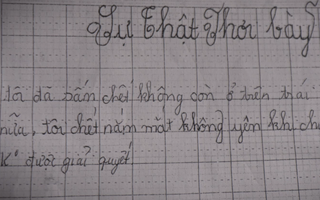 Sự Thật Phơi bày
tôi đã bấm chết không còn ở trên trái
nữa, tôi chết nắm mắt không yên khi ch
K° được giải quyết